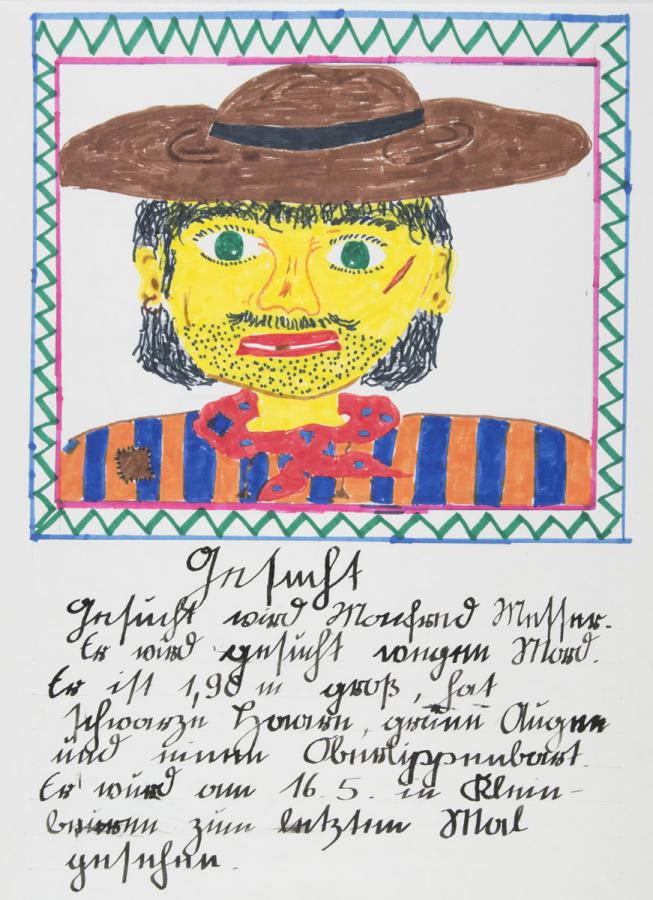 Gesucht
Gesucht wird Manfred Messer.
Er wird gesucht wegen Mord.
Er ist 1,98 m groß, hat
schwarze Haare, grüne Augen
und einen Oberlippenbart.
Er wurd am 16.5. in Klein-
beuren zum letzten Mal
gesehen.